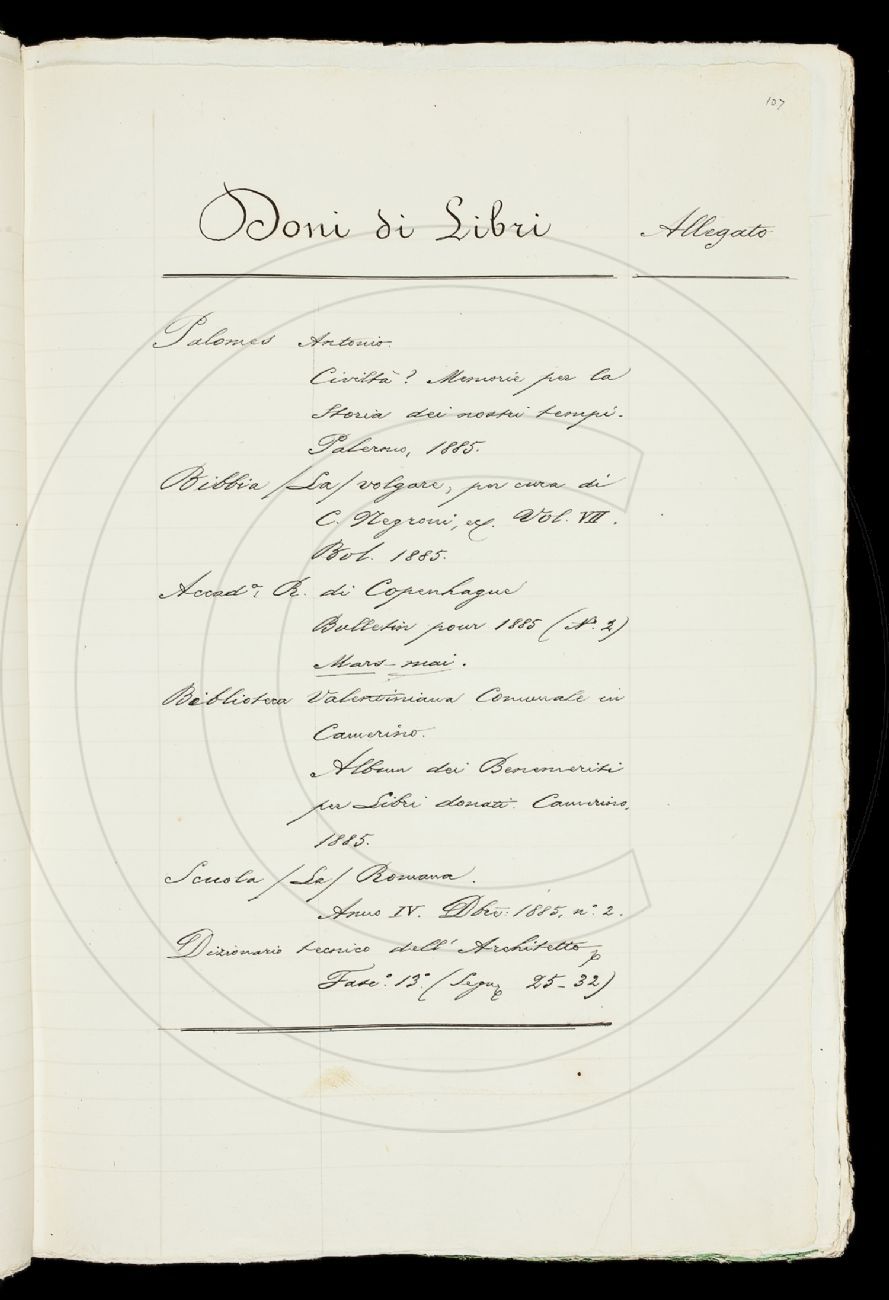 107
Doni di Libri
Allegato
Palomes Antonio.
Civiltà? Memorie per la
Storia dei nostri tempi.
Palermo, 1885.
Bibbia /La/ volgare, per cura di
C. Negroni, ec. Vol. VII.
Bol. 1885.
Accad.a R. di Copenhague
Bulletin pour 1885 (N. 2)
Mars-mai.
Biblioteca Valentiniana Comunale in
Camerino.
Album dei Benemeriti
per Libri donati. Camerino,
1885.
Scuola /La/ Romana.
Anno IV. Dbre: 1885, n.° 2.
Dizionario tecnico dell' Architetto
Fasc.° 13.° ( 25-32)